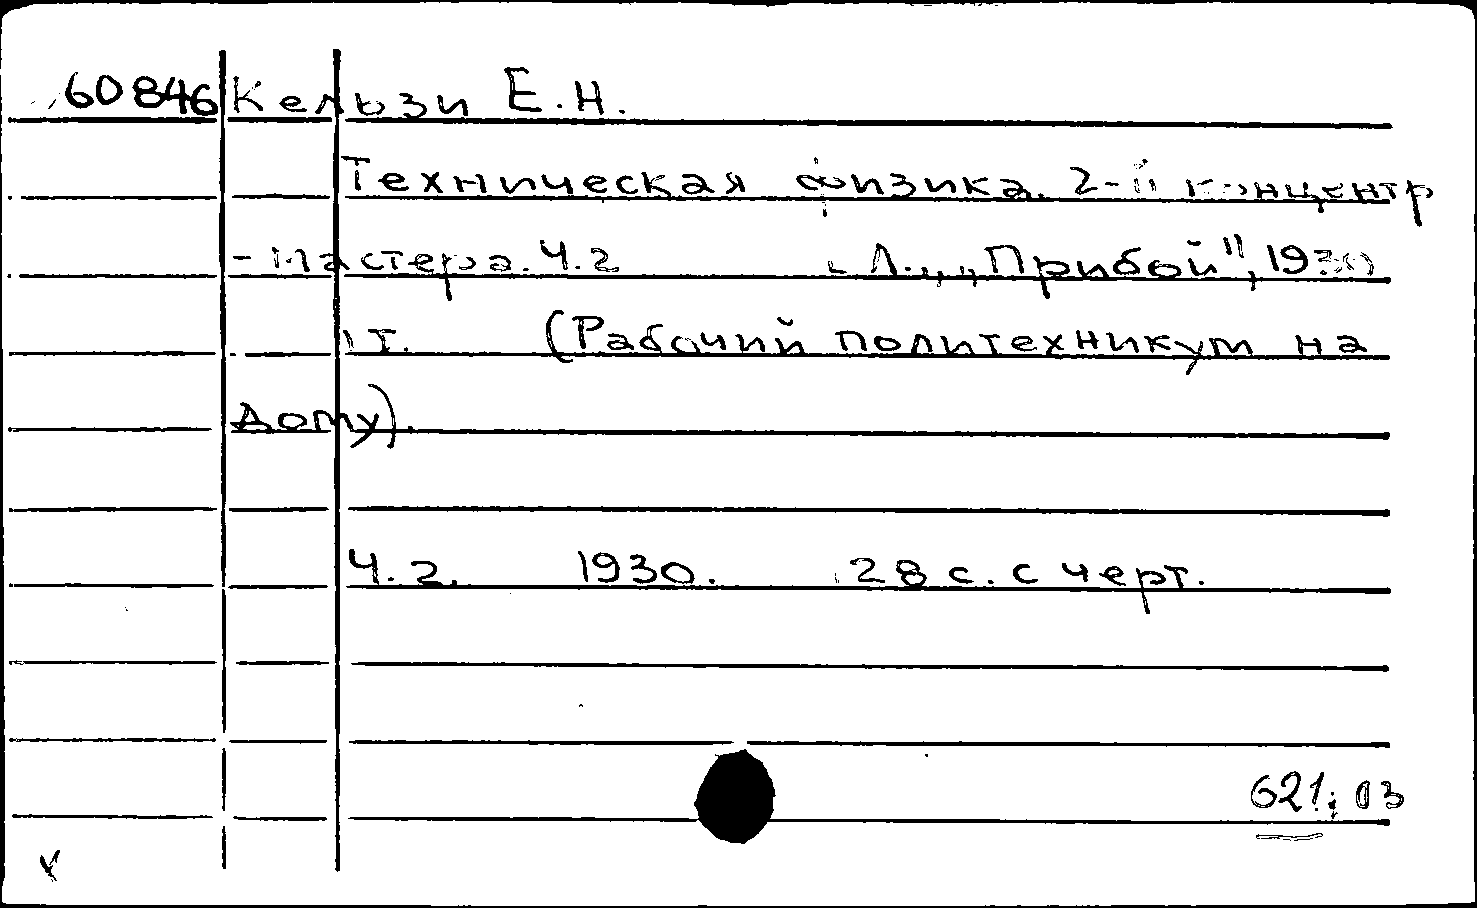 60846 Кельзи Е.Н.
Техническая физика. 2-й концентр
- мастера. Ч.2 Л., „Прибой", 1930
1 т. (Рабочий политехникум на
дому).
Ч.2. 1930. 28 с. с черт.
621:03